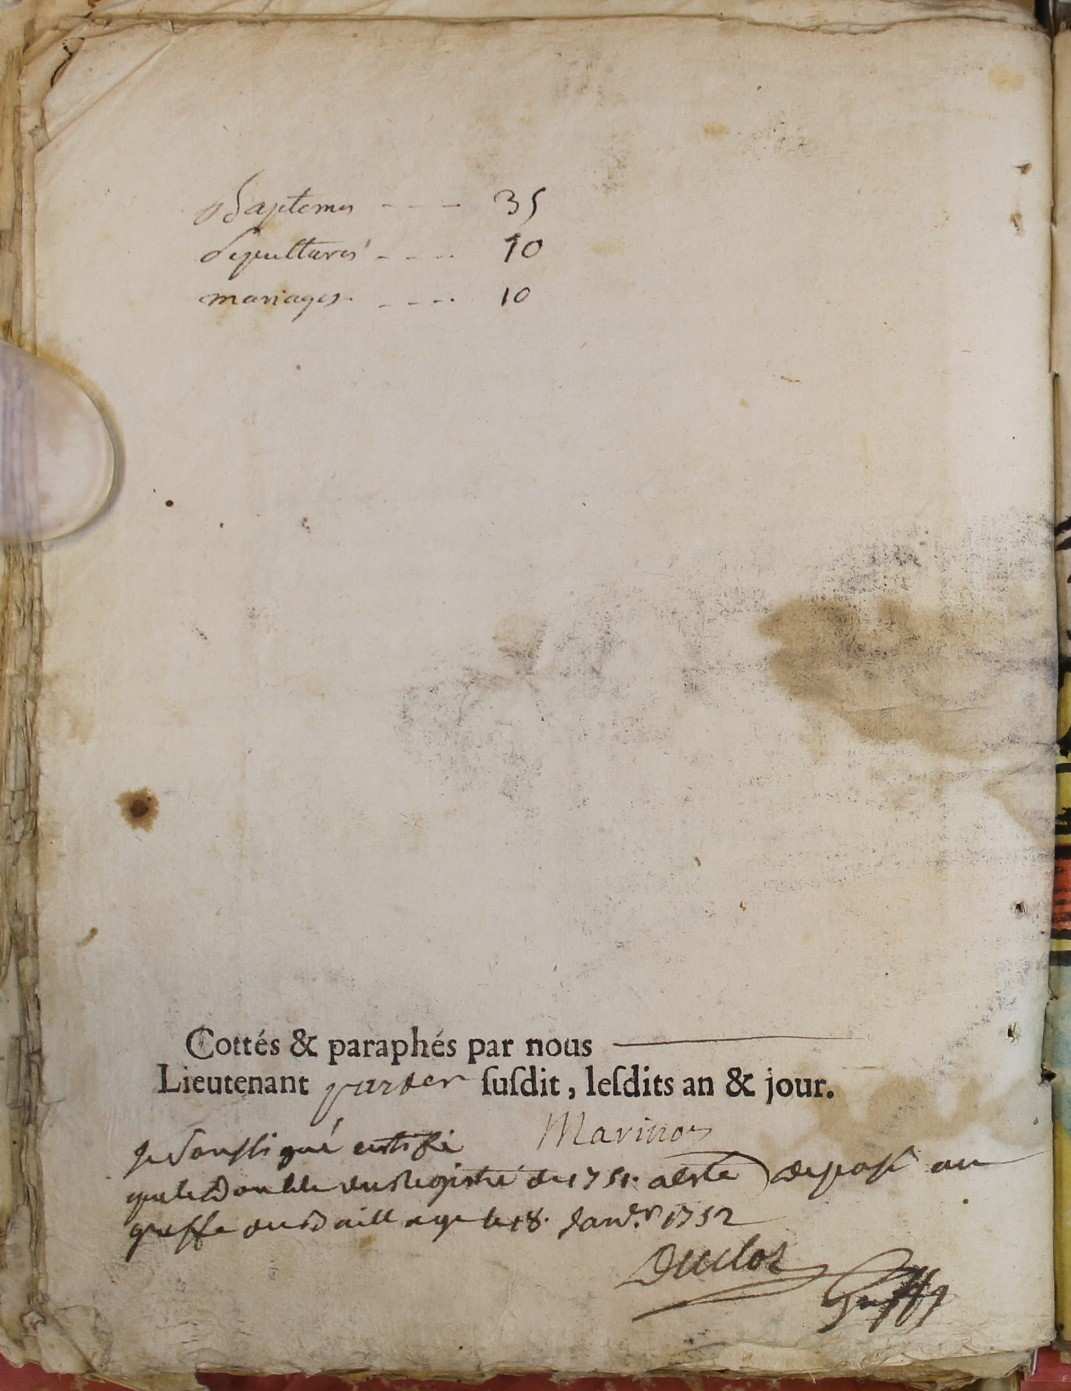 Baptemes - - - 35
Sepultures - - - - 10
mariages. - - - - 10
Cottés & paraphés par nous
Lieutenant parter ſuſdit, leſdits an & jour.
Marinos
Je soussigné certifie
que le Double du Registre de 1751. a esté deposé au
greffe du Baillage le 18. Janv.r 1752
Duclos